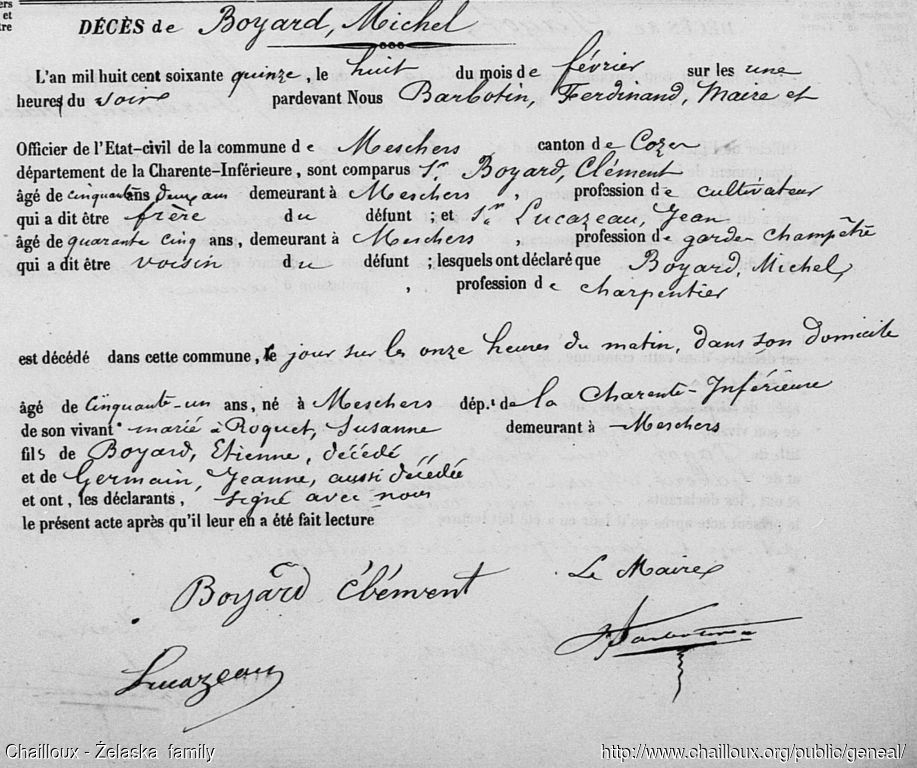 ers
et
tre
DÉCÈS de Boyard, Michel
L'an mil huit cent soixante quinze, le huit du mois de février sur les une
heures du soir pardevant Nous Barbotin, Ferdinand, Maire et
Officier de l'Etat-civil de la commune de Meschers canton de Cozes
département de la Charente-Inférieure, sont comparus Sr Boyard, Clément
âgé de cinquante deux ans demeurant à Meschers, profession de cultivateur
qui a dit être frère du défunt ; et Sr Lucazeau, Jean
âgé de quarante cinq ans, demeurant à Meschers, profession de garde champêtre
qui a dit être voisin du défunt ; lesquels ont déclaré que Boyard, Michel,
, profession de charpentier
est décédé dans cette commune, ce jour sur les onze heures du matin, dans son domicile
âgé de cinquante-un ans, né à Meschers dép.t de la Charente-Inférieure
de son vivant marié à Roquet, Susanne demeurant à Meschers
fils de Boyard, Etienne, décédé
et de Germain, Jeanne, aussi décédée
et ont, les déclarants, signé avec nous
le présent acte après qu'il leur en a été fait lecture
Boyard Clément
Le Maire
F Barbotin
Lucazeau
Chailloux - Želaska family
http://www.chailloux.org/public/geneal/